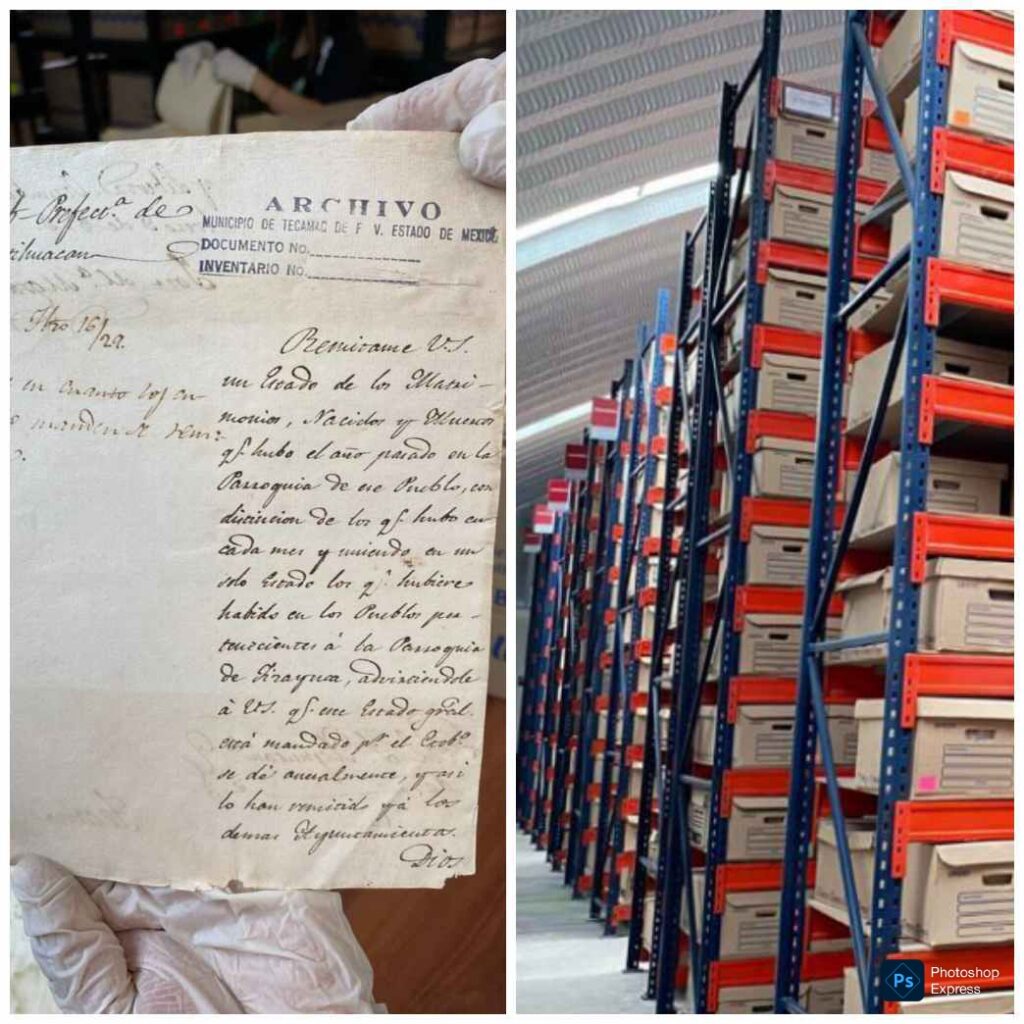 Profecc.ª de
ARCHIVO
MUNICIPIO DE TECAMAC DE F V. ESTADO DE MEXICO
DOCUMENTO NO.
INVENTARIO NO.
16/22.
en cuanto los
Remitame V.S.
un Estado de los Matri-
monios, Nacidos y Muertos
q.e hubo el año pasado en la
Parroquia de ese Pueblo, con
distincion de los q.e hubo en
cada mes y uniendo en un
solo Estado los q.e hubiere
habido en los Pueblos per-
tenecientes á la Parroquia
de Tizayuca, advirtiendole
á VS. q.e este Estado gräl.
está mandado p.r el Gob.o
se dé anualmente, y asi
lo han remitido yá los
demas Ayuntamientos.
Dios
Ps
Photoshop
Express